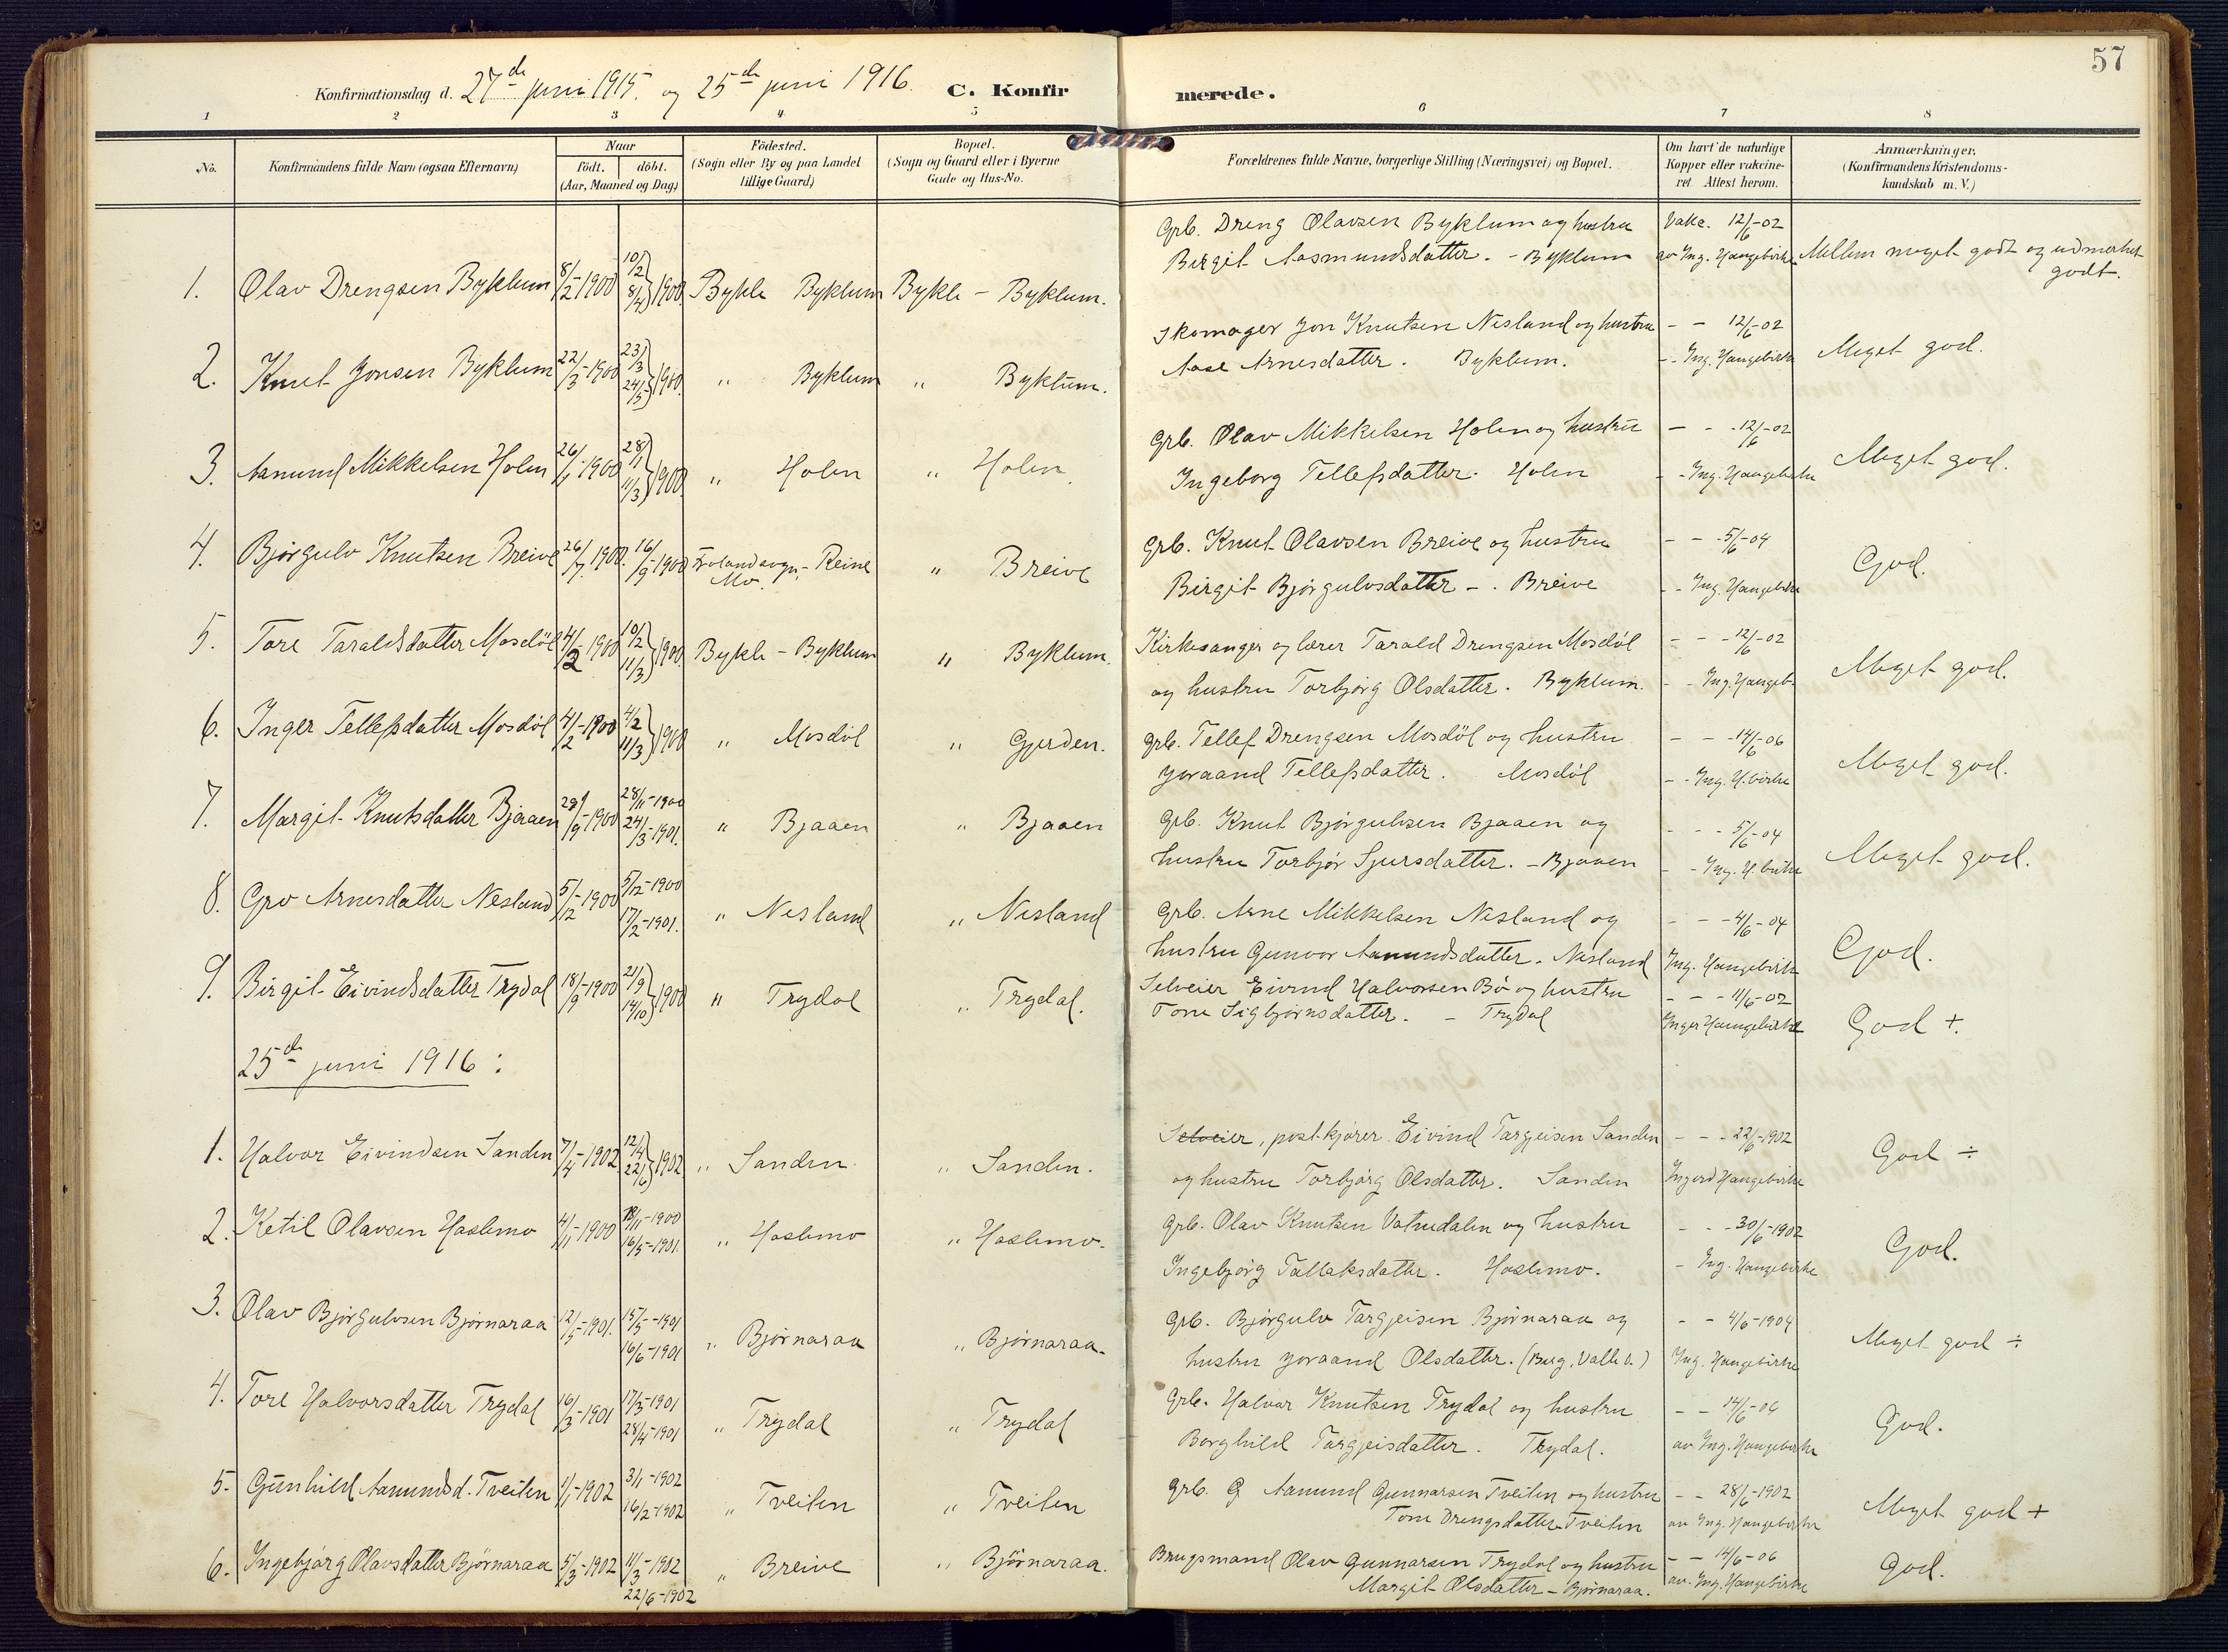 57
Konfirmationsdag d. 27de juni 1915. og 25de juni 1916. C. Konfirmerede.
1 2 3 4 5 6 7 8
No. Konfirmandens fulde Navn (ogsaa Efternavn) Naar født, døbt. (Aar, Maaned og Dag) Fødested. (Sogn eller By og paa Landet tillige Gaard) Bopæl. (Sogn og Gaard eller i Byerne Gade og Hus-No. Forældrenes fulde Navne, borgerlige Stilling (Næringsvei) og Bopæl. Om havt de naturlige Kopper eller vakcineret. Attest herom. Anmærkninger, (Konfirmandens Kristendomskundskab m. V.)
1. Olav Drengsen Byklum 8/2-1900 10/2 8/4 } 1900 Bykle Byklum Bykle - Byklum. Grb. Dreng Olavsen Byklum og hustru Vakc. 12/6-02
Birgit Aasmundsdatter. - Byklum av Ing. Haugebirke Mellem meget godt og udmerket godt.
2. Knut Jonsen Byklum 22/3-1900 23/3 24/5 } 1900. " Byklum " Byklum. Skomager Jon Knutsen Nesland og hustru - - 12/6-02
Aase Arnesdatter. Byklum. - - Ing. Haugebirke Meget god.
3. Aanund Mikkelsen Holen 26/1-1900 28/1 11/3 } 1900. " Holen " Holen. Grb. Olav Mikkelsen Holen og hustru - - - 12/6-02
Ingeborg Tellefsdatter. Holen - - Ing. Haugebirke Meget god.
4. Bjørgulv Knutsen Breive 26/7.1900. 16/9-1900 Frolandsogn - Reine Mo. " Breive Grb. Knut Olavsen Breive og hustru - - - 5/6-04
Birgit Bjørgulvsdatter - . Breive - - Ing. Haugebirke God.
5. Tore Taraldsdatter Mosdøl 4/2-1900 10/2 11/3 } 1900 Bykle - Byklum " Byklum. Kirkesanger og lærer Tarald Drengsen Mosdøl - - - 12/6-02
og hustru Torbjørg Olsdatter. Byklum. - - Ing. Haugeb- Meget god.
6. Inger Tellefsdatter Mosdøl 4/2-1900 4/2 11/3 } 1900 " Mosdøl " Gjerden. Grb. Tellef Drengsen Mosdøl og hustru - - - 14/6-06
Joraand Tellefsdatter. Mosdøl - - Ing. H.birke Meget god.
7. Margit Knutsdatter Bjaaen 29/9-1900 28/11-1900 24/3-1901. " Bjaaen " Bjaaen Grb. Knut Bjørgulvsen Bjaaen og - - - 5/6-04
hustru Torbjør Sjursdatter. - Bjaaen - - Ing. H.birke Meget god.
8. Gro Arnesdatter Nesland 5/12-1900 5/12-1900 17/2-1901. " Nesland " Nesland Grb. Arne Mikkelsen Nesland og - - - 4/6-04
hustru Gunvor Aanundsdatter. Nesland Ing. Haugebirke God.
9. Birgit Eivindsdatter Trydal 18/9-1900 21/9 14/10 } 1900 " Trydal " Trydal. Selveier Eivind Halvorsen Bø og hustru - - - 11/6-02
Tone Sigbjørnsdatter. - Trydal Inger Haugebirke God +.
25de juni 1916:
1. Halvor Eivindsen Sanden 7/4-1902 12/4 22/6 } 1902 " Sanden. " Sanden. Selveier, post-kjører Eivind Targjeisen Sanden - - - 22/6-1902
og hustru Torbjørg Olsdatter. Sanden Ingerd Haugebirke God ÷
2. Ketil Olavsen Hoslemo 4/11-1900 18/11-1900 16/5-1901. " Hoslemo " Hoslemo. Grb. Olav Knutsen Vatnedalen og hustru - - - 30/6-1902
Ingebjørg Tallaksdatter. Hoslemo. - Ing. Haugebirke God.
3. Olav Bjørgulvsen Bjørnaraa 12/5-1901. 15/5-1901 16/6-1901 " Bjørnaraa " Bjørnaraa. Grb. Bjørgulv Targjeisen Bjørnaraa og - - 4/6-1904
hustru Joraand Olsdatter. (Berg, Valle s.) Ing. Haugebirke Meget god ÷
4. Tore Halvorsdatter Trydal 16/3-1901 17/3-1901 28/4-1901 " Trydal " Trydal Grb. Halvor Knutsen Trydal og hustru - - 14/6-06
Borghild Targjeisdatter. Trydal. av Ing. Haugebirke God.
5. Gunhild Aanundsd. Tveiten 1/1-1902 3/1-1902 16/2-1902 " Tveiten " Tveiten Grb. G Aanund Gunnarsen Tveiten og hustru - - 28/6-1902
Tone Drengsdatter. Tveiten av Ing. Haugebirke Meget god +
6. Ingebjørg Olavsdatter Bjørnaraa 5/3-1902 11/3-1902 22/6-1902 " Breive " Bjørnaraa. Brugsmand Olav Gunnarsen Trydal og hustru - - 14/6-06
Margit Olsdatter - Bjørnaraa. av. Ing. Haugebirke God.